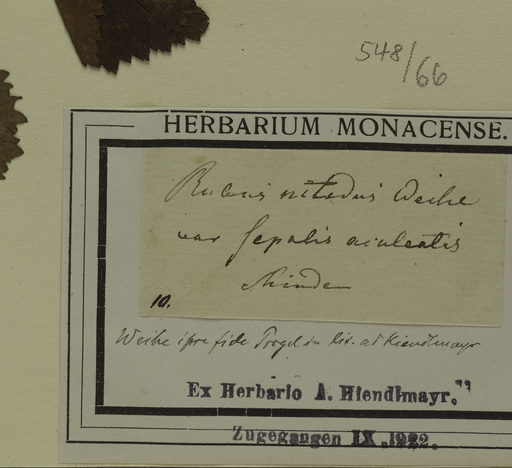 548/66
HERBARIUM MONACENSE.
Rubus nitidus Weihe
var sepalis aculeatis
Minden
10.
Weihe ipse fide Progel in lit. ad Hiendlmayr
Ex Herbario A. Hiendlmayr.
Zugegangen IX.1922.